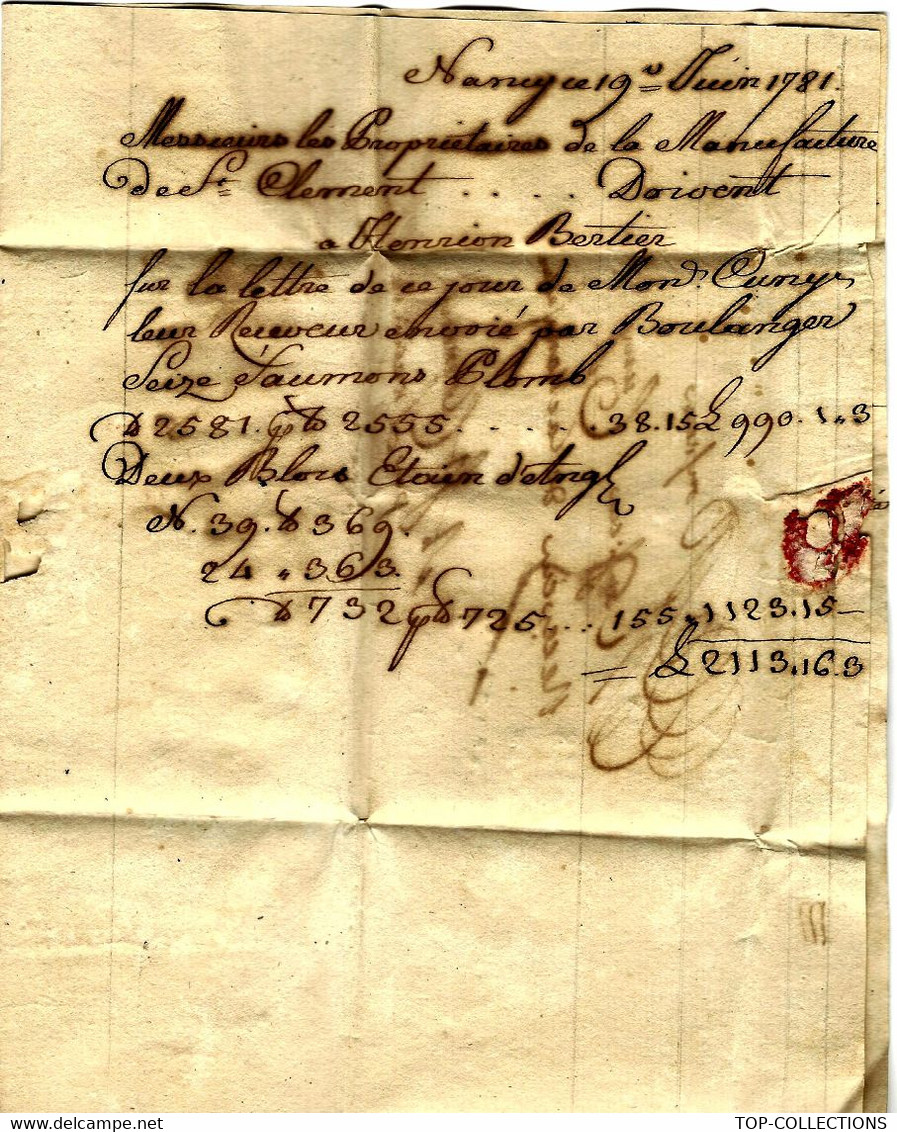 Nancy ce 19e Juin 1781.
Messieurs les Propriétaires de la Manufacture
de St Clement .... Doivent
a Henrion Bertier
sur la lettre de ce jour de Mond. Cuny
leur Receveur envoié par Boulanger
Seize Saumons Plomb
lb 2581. p lb 2555. .... 38.15 £ 990.1.3
Deux Blocs Etain d'Angl
N. 39. lb 369.
24 " 363.
lb 732 p lb 725 ... 155 " 1123.15 —
= £ 2113.16.3
TOP-COLLECTIONS